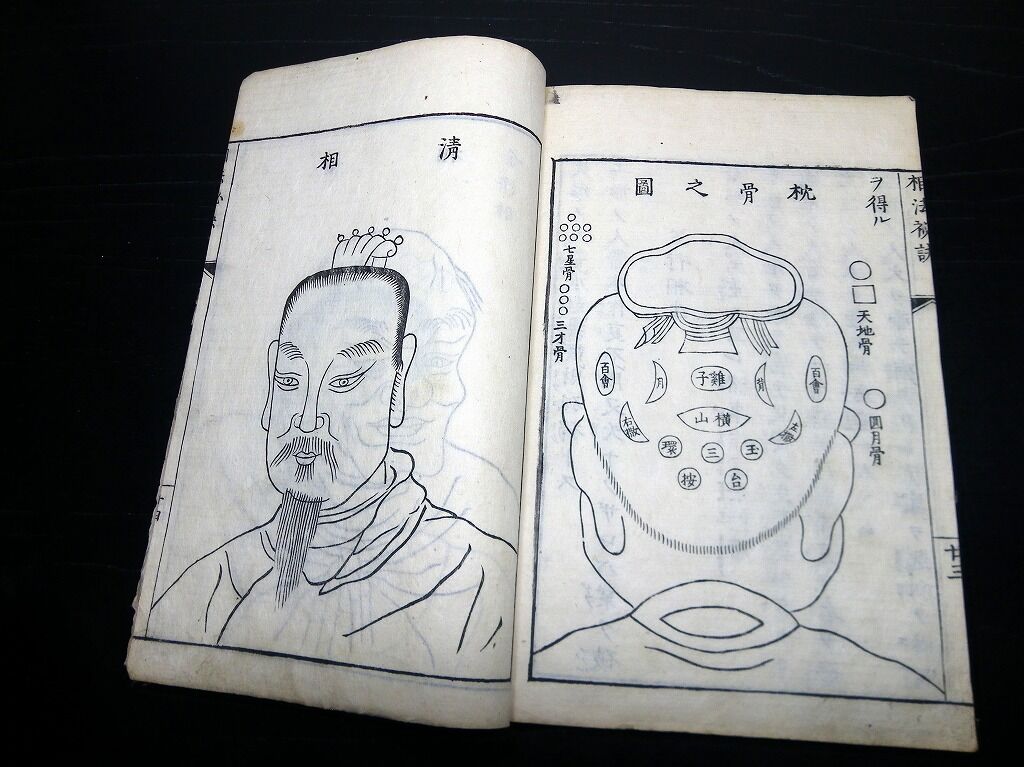 相法
廿三
ヲ得ル
枕骨之圖
天地骨
四月骨
百會
雞子
月
百會
橫山
玉
三
環
台
按
七星骨
三才骨
清相